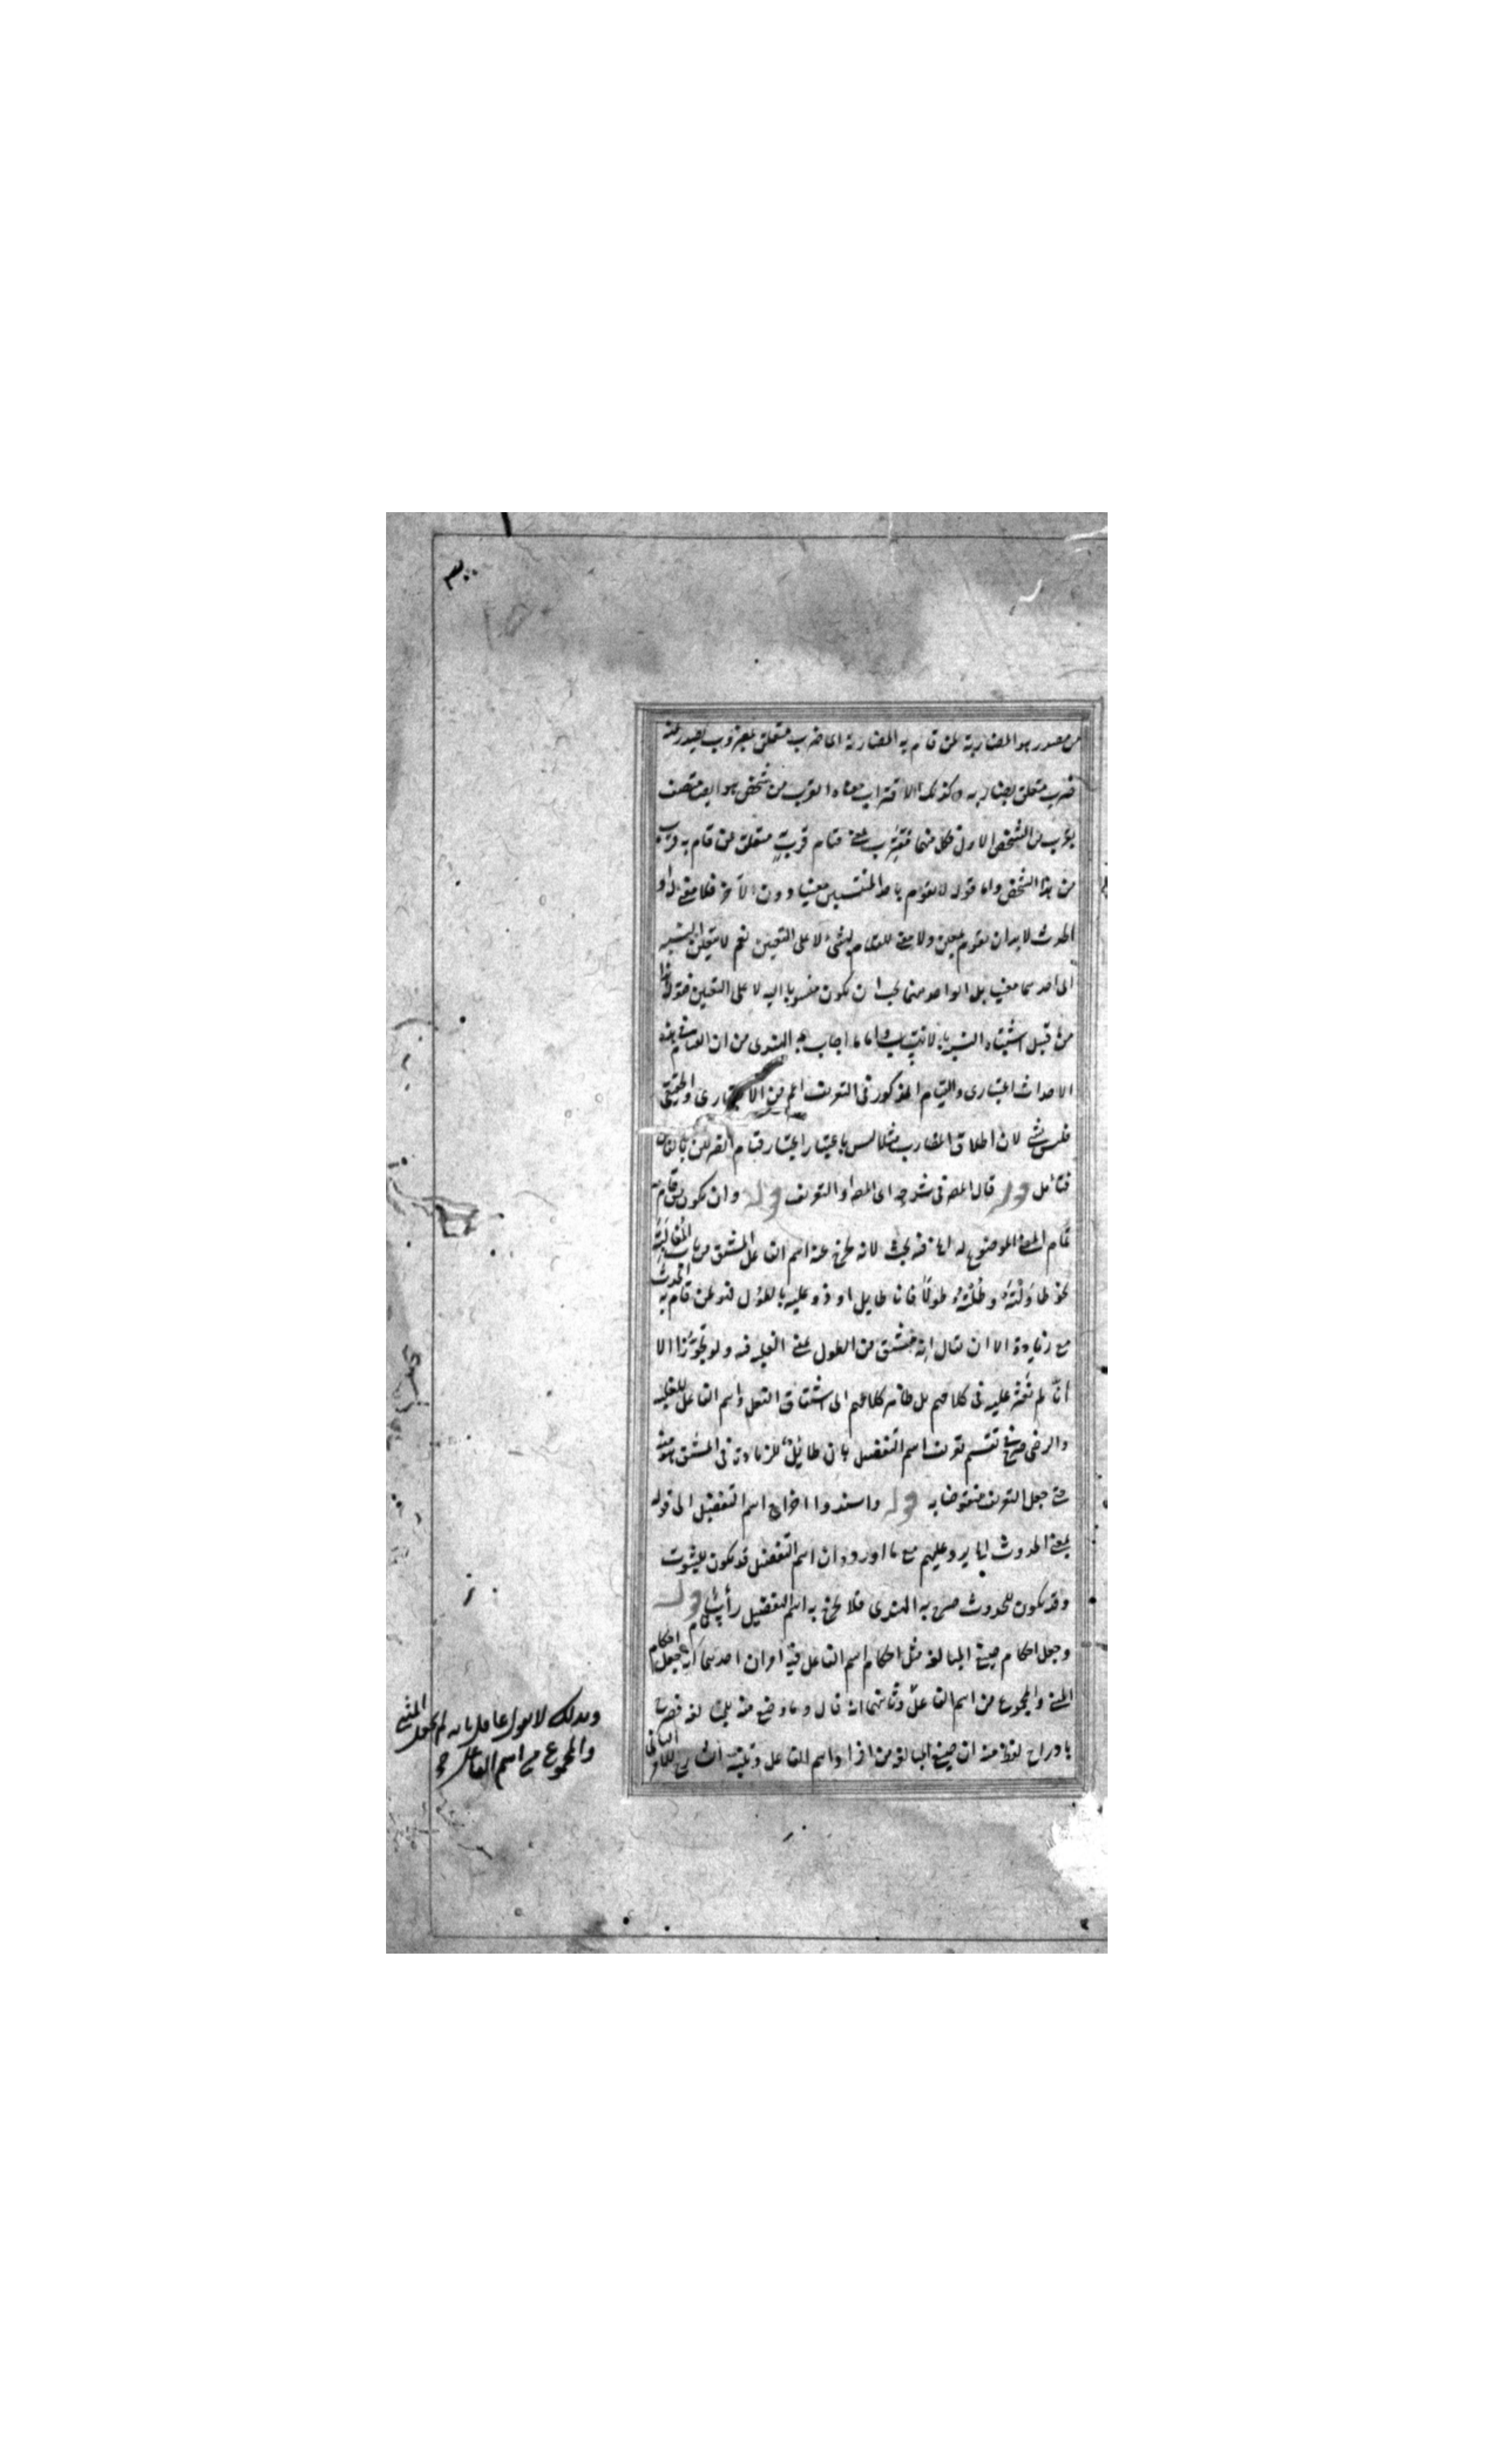 ٣٠٠
من مصدر هو المضاربة لمن قام به المضاربة اى ضرب متعلق بمضروب يصدر عنه
ضرب متعلق بضاربه وكذلك الاقتراب معناه القرب من شخص هو ايضا متصف
بقرب من الشخص الاول فكل منهما مقترب بمعنى قيام قرب متعلق بمن قام به قرب
من هذا الشخص واما قوله لا يقوم باحد المنتسبين معينا دون الآخر فلا معنى له او
الحدث لا بد ان يقوم بمعين ولا معنى للقيام بشىء لا على التعيين نعم لا يتعين النسبة
الى احدهما معينا بل الواحد منهما يجب ان يكون منسوبا اليه لا على التعيين فقوله هذا
من قبيل اشتباه النسبة بالانتساب واما ما اجاب به الهندى من ان القيام فى هذه
الاحداث اعتبارى والقيام المذكور فى التعريف اعم من الاعتبارى والحقيقى
فليس بشىء لان اطلاق المضارب مثلا ليس باعتبار اعتبار قيام الضربين بالفاعل
فتأمل قوله قال المصـ فى شرحه اى المصـ او التعريف قوله وان يكون من قام به
تمام المعنى الموضوع له اما فيه بحث لانه يخرج عنه اسم الفاعل المشتق من باب المغالبة
نحو طاولته وطلته طولا فانا طايل او ذو غلبة بالطول فهو لمن قام به الحدث
مع زيادة الا ان يقال انه مشتق من الطول بمعنى الغلبة فيه ولو تجوزا الا
انا لم نعثر عليه فى كلامهم بل ظاهر كلامهم الى اشتقاق الفعل واسم الفاعل للغلبة
والرضى صرح فى تقسيم تعريف اسم التفضيل بان طائل للزيادة فى المشتق منه
حتى جعل التعريف منقوضا به قوله واسندوا اخراج اسم التفضيل الى قوله
بمعنى الحدوث اما يرد عليهم مع ما اورده ان اسم التفضيل قد يكون للثبوت
وقد يكون للحدوث صرح به الهندى فلا يخرج به اسم التفضيل رأسا قوله
وجعل احكام صيغ المبالغة مثل احكام اسم الفاعل فيه امران احدهما انه جعل احكام
المثنى والمجموع من اسم الفاعل وثانيهما انه قال وما وضع منه للمبالغة فصرح
بادراج لفظ منه ان صيغ المبالغة من افراد اسم الفاعل
وبذلك لا يقول عاقل بانه لم يجعل المثنى
والمجموع من اسم الفاعل